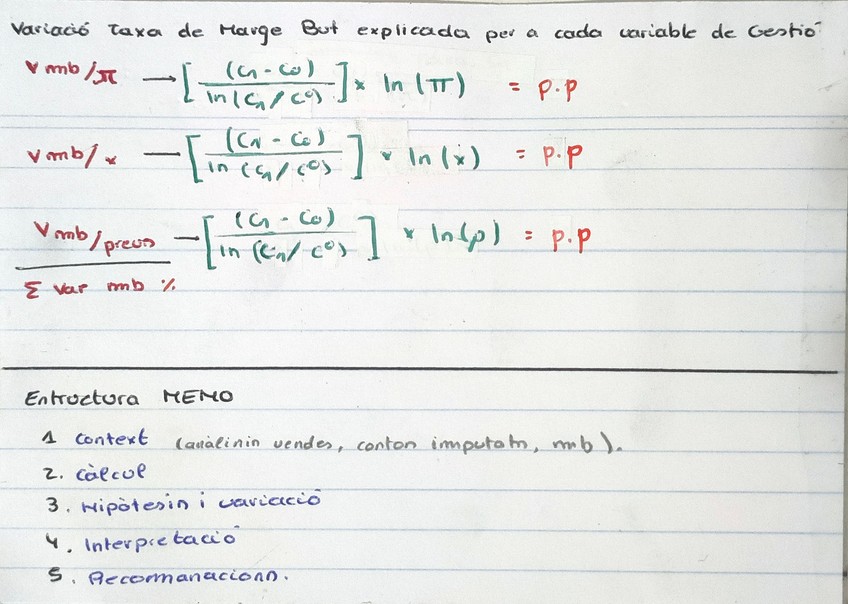 Variació Taxa de Marge But explicada per a cada variable de Gestió
V mb/π → [(C1 - C0) / ln(C1/C0)] × ln(π) = p.p
V mb/x — [(C1 - C0) / ln(C1/C0)] × ln(x) = p.p
V mb/preus — [(C1 - C0) / ln(C1/C0)] × ln(p) = p.p
Σ var mb %
Estructura MEMO
1 context (anàlisis vendes, costos imputats, mb).
2. càlcul
3. Hipòtesis i variació
4. Interpretació
5. Recomanacions.